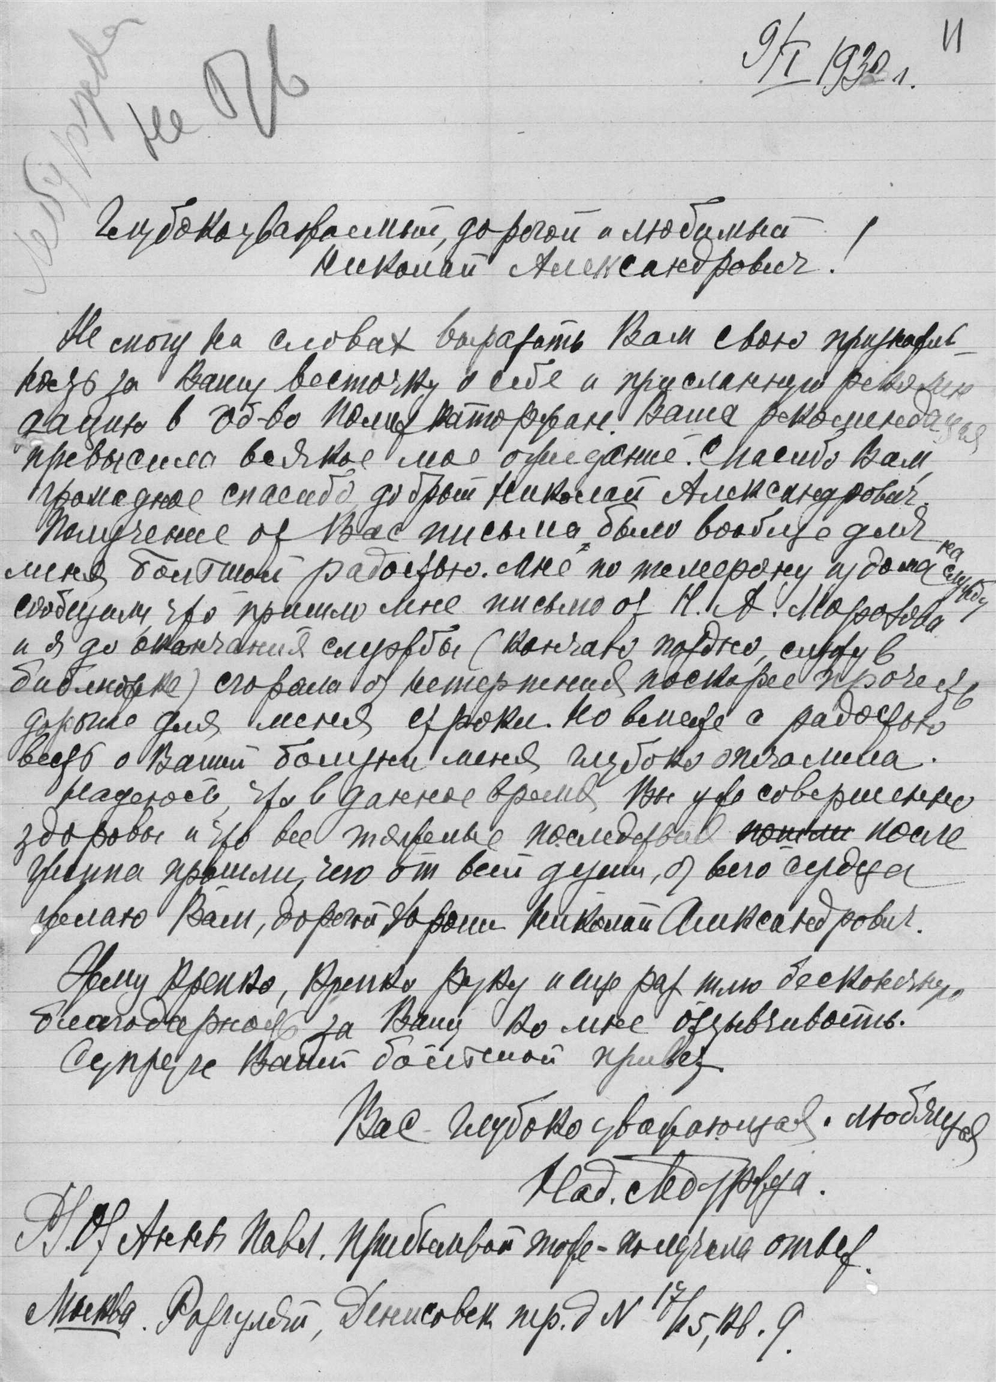 11
9/I 1932 г.
Не ОГВ
Глубокоуважаемый, дорогой и любимый
Николай Александрович!
Не могу на словах выразить Вам свою признатель-
ность за Вашу весточку о себе и присланную рекомен
дацию в об-во полит каторжан. Ваша рекомендация
превысила всякое мое ожидание. Спасибо Вам,
громадное спасибо добрый Николай Александрович.
Получение от Вас письма было вообще для
меня большой радостью. Мне по телефону из дома на службу
сообщили, что пришло мне письмо от Н. А. Морозова
и я до окончания службы (кончаю поздно, служу в
библиотеке) сгорала от нетерпения поскорее прочесть
дорогие для меня строки. Но вместе с радостью
весть о Вашей болезни меня глубоко опечалила.
Надеюсь, что в данное время Вы уже совершенно
здоровы и что все тяжелые последствия пошли после
гриппа прошли, чего от всей души, от всего сердца
желаю Вам, дорогой, хороший Николай Александрович.
Жму крепко, крепко руку и еще раз шлю бесконечную
благодарность за Вашу ко мне отзывчивость.
Супруге Вашей большой привет.
Вас глубоко уважающая и любящая
Над.
P.S. От Анны Павл. Прибылевой тоже получила ответ.
Москва. Разгуляй, Денисовск пер. д N 17/15, кв. 9.